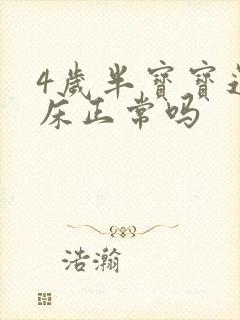 4岁半宝宝
床正常吗
浩瀚